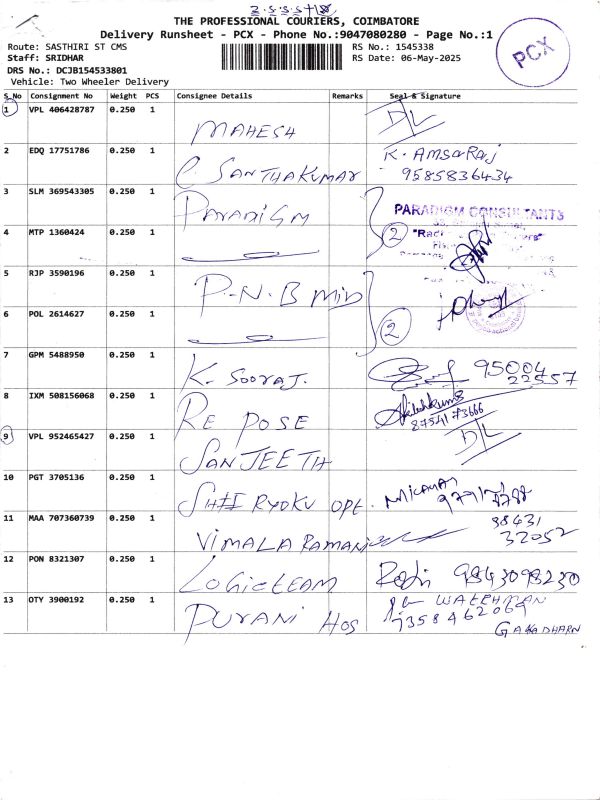 THE PROFESSIONAL COURIERS, COIMBATORE
Delivery Runsheet - PCX - Phone No.:9047080280 - Page No.:1
Route: SASTHIRI ST CMS
Staff: SRIDHAR
DRS No.: DCJB154533801
Vehicle: Two Wheeler Delivery
RS No.: 1545338
RS Date: 06-May-2025
PCX
S_No Consignment No Weight PCS Consignee Details Remarks Seal & Signature
1 VPL 406428787 0.250 1 MAHESH D/L
2 EDQ 17751786 0.250 1 C. SANTHAKUMAR K. AMSARAJ
9585836434
3 SLM 369543305 0.250 1 PARADIGM PARADIGM CONSULTANTS
4 MTP 1360424 0.250 1 2
5 RJP 3590196 0.250 1 P.N.B
6 POL 2614627 0.250 1 2
7 GPM 5488950 0.250 1 K. SOORAJ. 95004
22557
8 IXM 508156068 0.250 1 RE POSE
8754173666
9 VPL 952465427 0.250 1 SANJEETH D/L
10 PGT 3705136 0.250 1 SHII RYOKU OPT.
11 MAA 707360739 0.250 1 VIMALA RAMANI 38431
32052
12 PON 8321307 0.250 1 LOGICTEAM 9843098230
13 OTY 3900192 0.250 1 PURANI HOS WATCHMAN
7358462069